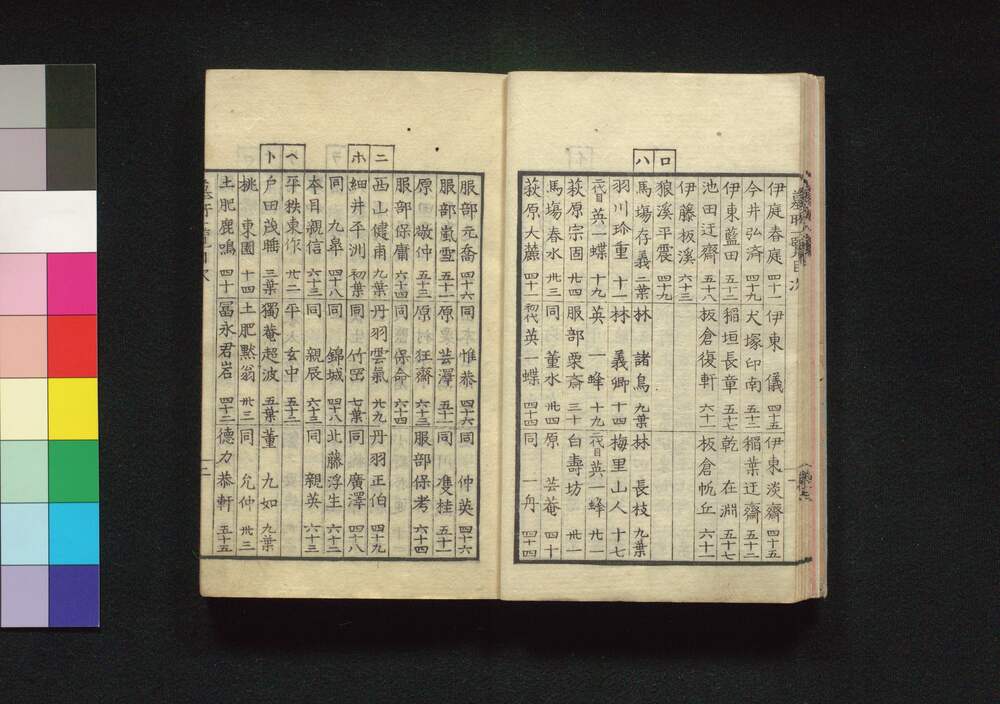 伊庭春庭 四十一 伊東 儀 四十五 伊東淡齋 四十五
今井弘濟 四十九 犬塚印南 五十二 稲葉迂齋 五十二
伊東藍田 五十二 稲垣長章 五十七 乾 在淵 五十七
池田迂齋 五十八 板倉復軒 六十一 板倉帆丘 六十一
伊藤板溪 六十三
ロ
狼溪平震 四十九
ハ
馬塲存義 二葉 林 諸鳥 九葉 林 長枝 九葉
羽川珍重 十一 林 義卿 十四 梅里山人 十七
二代目英一蝶 十九 英 一蜂 十九 二代目英一蜂 廿一
荻原宗固 廿四 服部栗斎 三十 白壽坊 卅一
馬塲春水 卅三 同 董水 卅四 原 芸菴 四十
荻原大麓 四十 初代英一蝶 四十四 同 一舟 四十四
服部元喬 四十六 同 惟恭 四十六 同 仲英 四十六
服部嵐雪 五十一 原 芸澤 五十一 同 雙桂 五十一
原 敬仲 五十三 原 狂齋 六十三 服部保考 六十四
服部保庸 六十四 同 保命 六十四
ニ
西山健甫 九葉 丹羽雲氣 廿九 丹羽正伯 四十九
ホ
細井平洲 初葉 同 竹岡 七葉 同 廣澤 四十八
同 九皐 四十八 同 錦城 四十八 北藤浮生 六十二
本目親信 六十三 同 親辰 六十三 同 親英 六十三
ヘ
平秩東作 廿二 平 玄中 五十三
ト
戸田茂睡 三葉 獨菴超波 五葉 董 九如 九葉
桃 東園 十四 土肥黙翁 卅三 同 允仲 卅三
土肥鹿鳴 四十 冨永君岩 四十二 德力恭軒 五十五